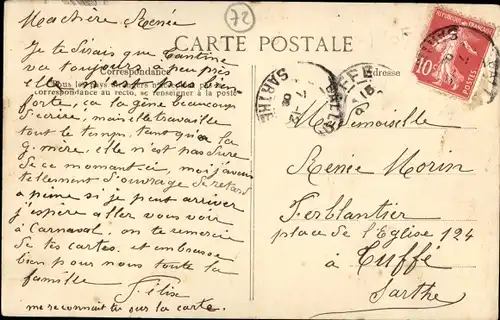 Ma chère Renée
72
CARTE POSTALE
Je te dirais que Tantine
va toujours à peu près
Correspondance
Adresse
elle n'est pas bien
Tous les pays
correspondance au recto, se renseigner à la poste
forte, ca la gène beaucoup
d'écrire, mais elle travaille
tout le temps, tant que la
g. mère, elle n'est pas dure
de ce moment ci, moi j'avais
tellement d'ouvrage de retard
a peine si je peut arriver
j'espère aller vous voir
à Carnaval, on te remercie
de tes cartes. et embrasse
bien pour nous toute la
famille
Félix
me reconnait tu sur la carte.
REPUBLIQUE FRANÇAISE
10c
POSTES
SARTHE
Mademoiselle
Renée Morin
Ferblantier
place de l'Eglise 124
à Tuffé
Sarthe